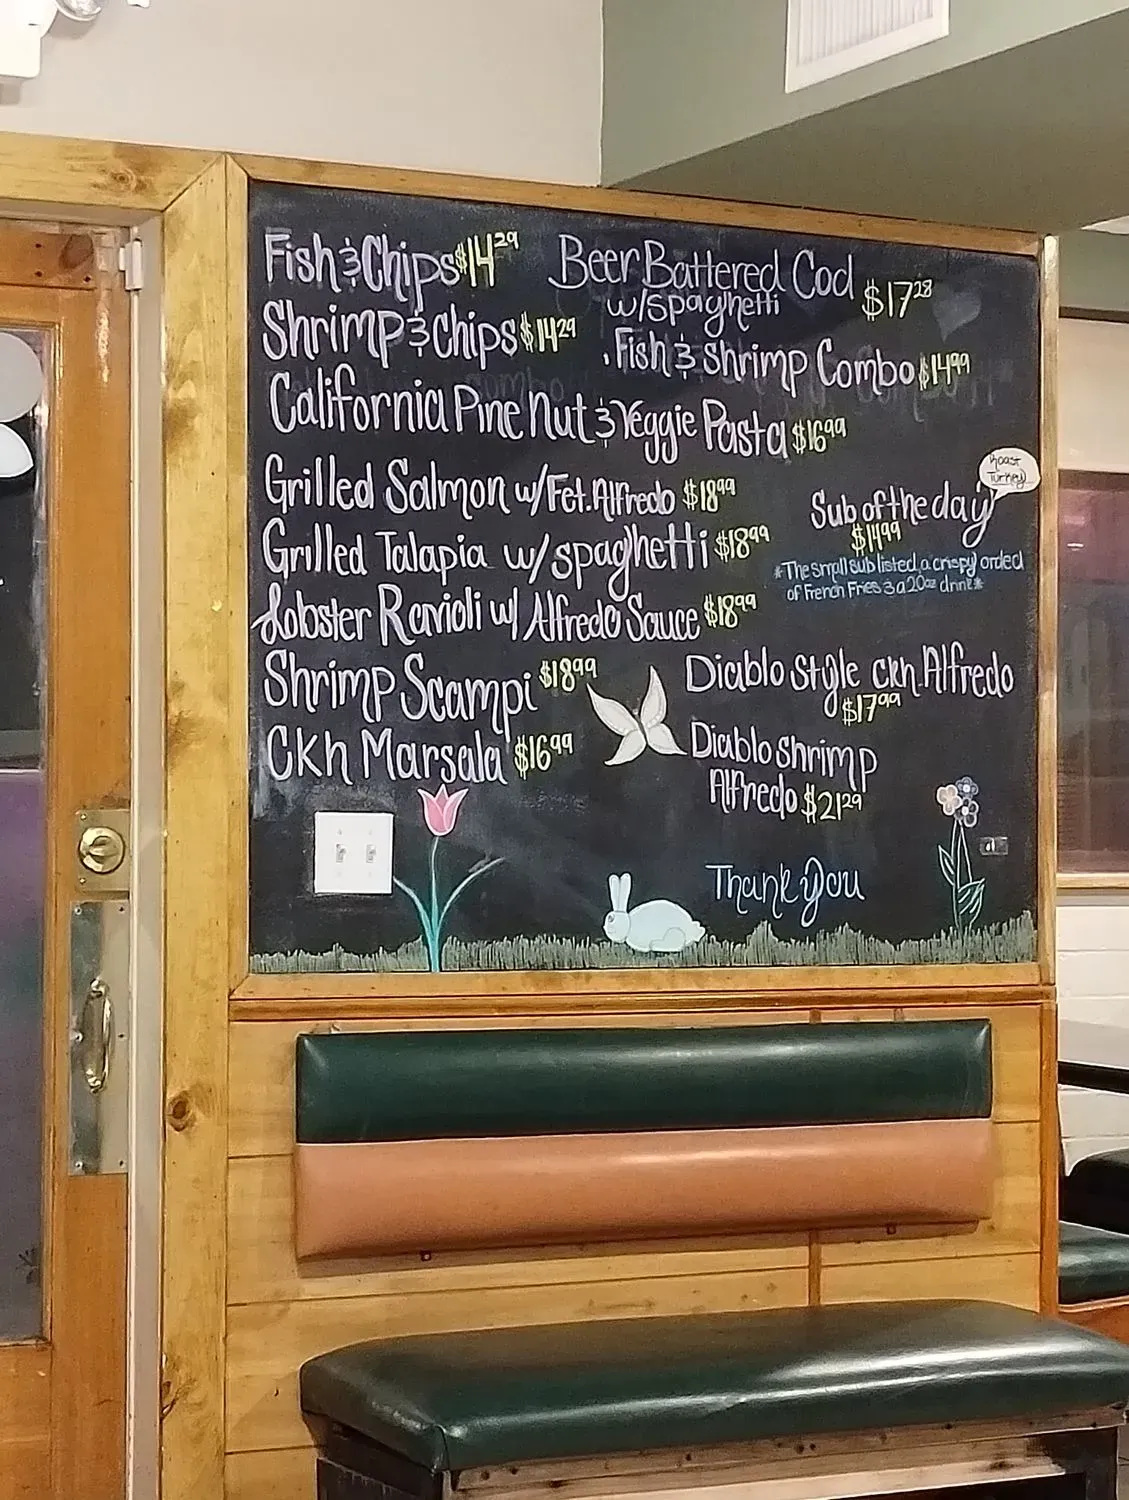 Fish & Chips $14.29
Beer Battered Cod
w/spaghetti $17.28
Shrimp & Chips $14.29
Fish & Shrimp Combo $14.99
California Pine Nut & Veggie Pasta $16.99
Grilled Salmon w/Fet. Alfredo $18.99
Roast
Turkey
Sub of the day
$14.99
*The small sub listed, a crispy orded
of French Fries & a 20oz drink*
Grilled Talapia w/spaghetti $18.99
Lobster Ravioli w/ Alfredo Sauce $18.99
Shrimp Scampi $18.99
Diablo Style Ckn. Alfredo
$17.99
Ckn Marsala $16.99
Diablo Shrimp
Alfredo $21.29
Thank you